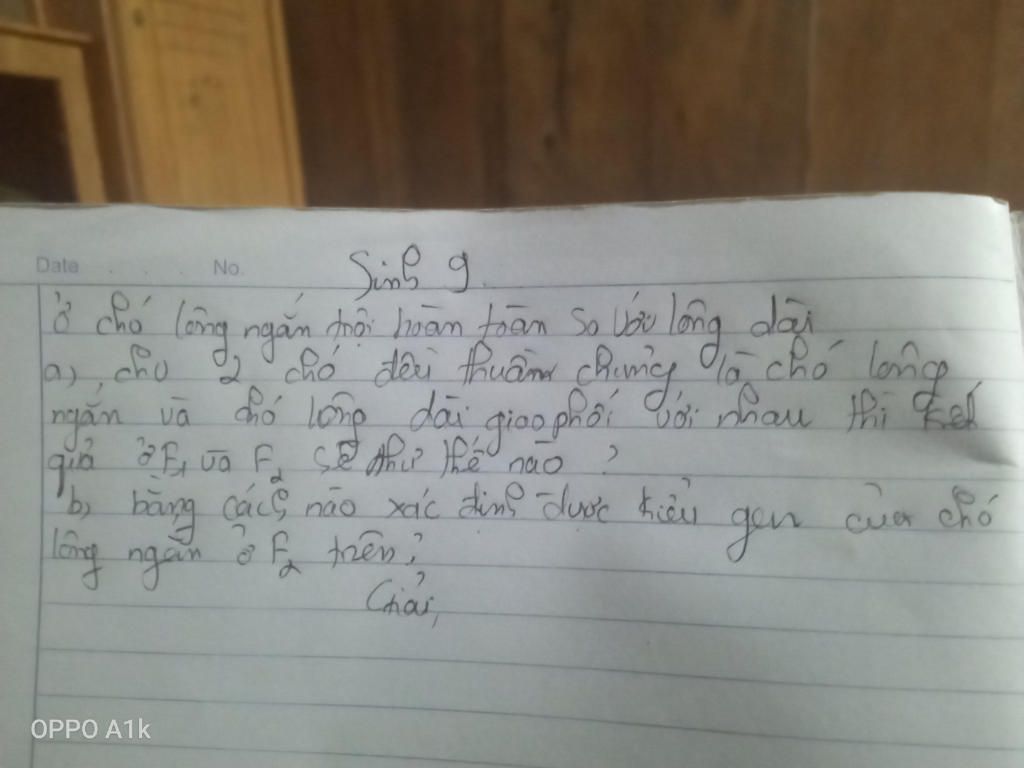 Date . . . No.
Sinh 9
Ở chó lông ngắn trội hoàn toàn so với lông dài
a, cho 2 chó đều thuần chủng là chó lông
ngắn và chó lông dài giao phối với nhau thì kết
quả ở F1 và F2 sẽ như thế nào ?
b, bằng cách nào xác định được kiểu gen của chó
lông ngắn ở F2 trên?
Giải,
OPPO A1k